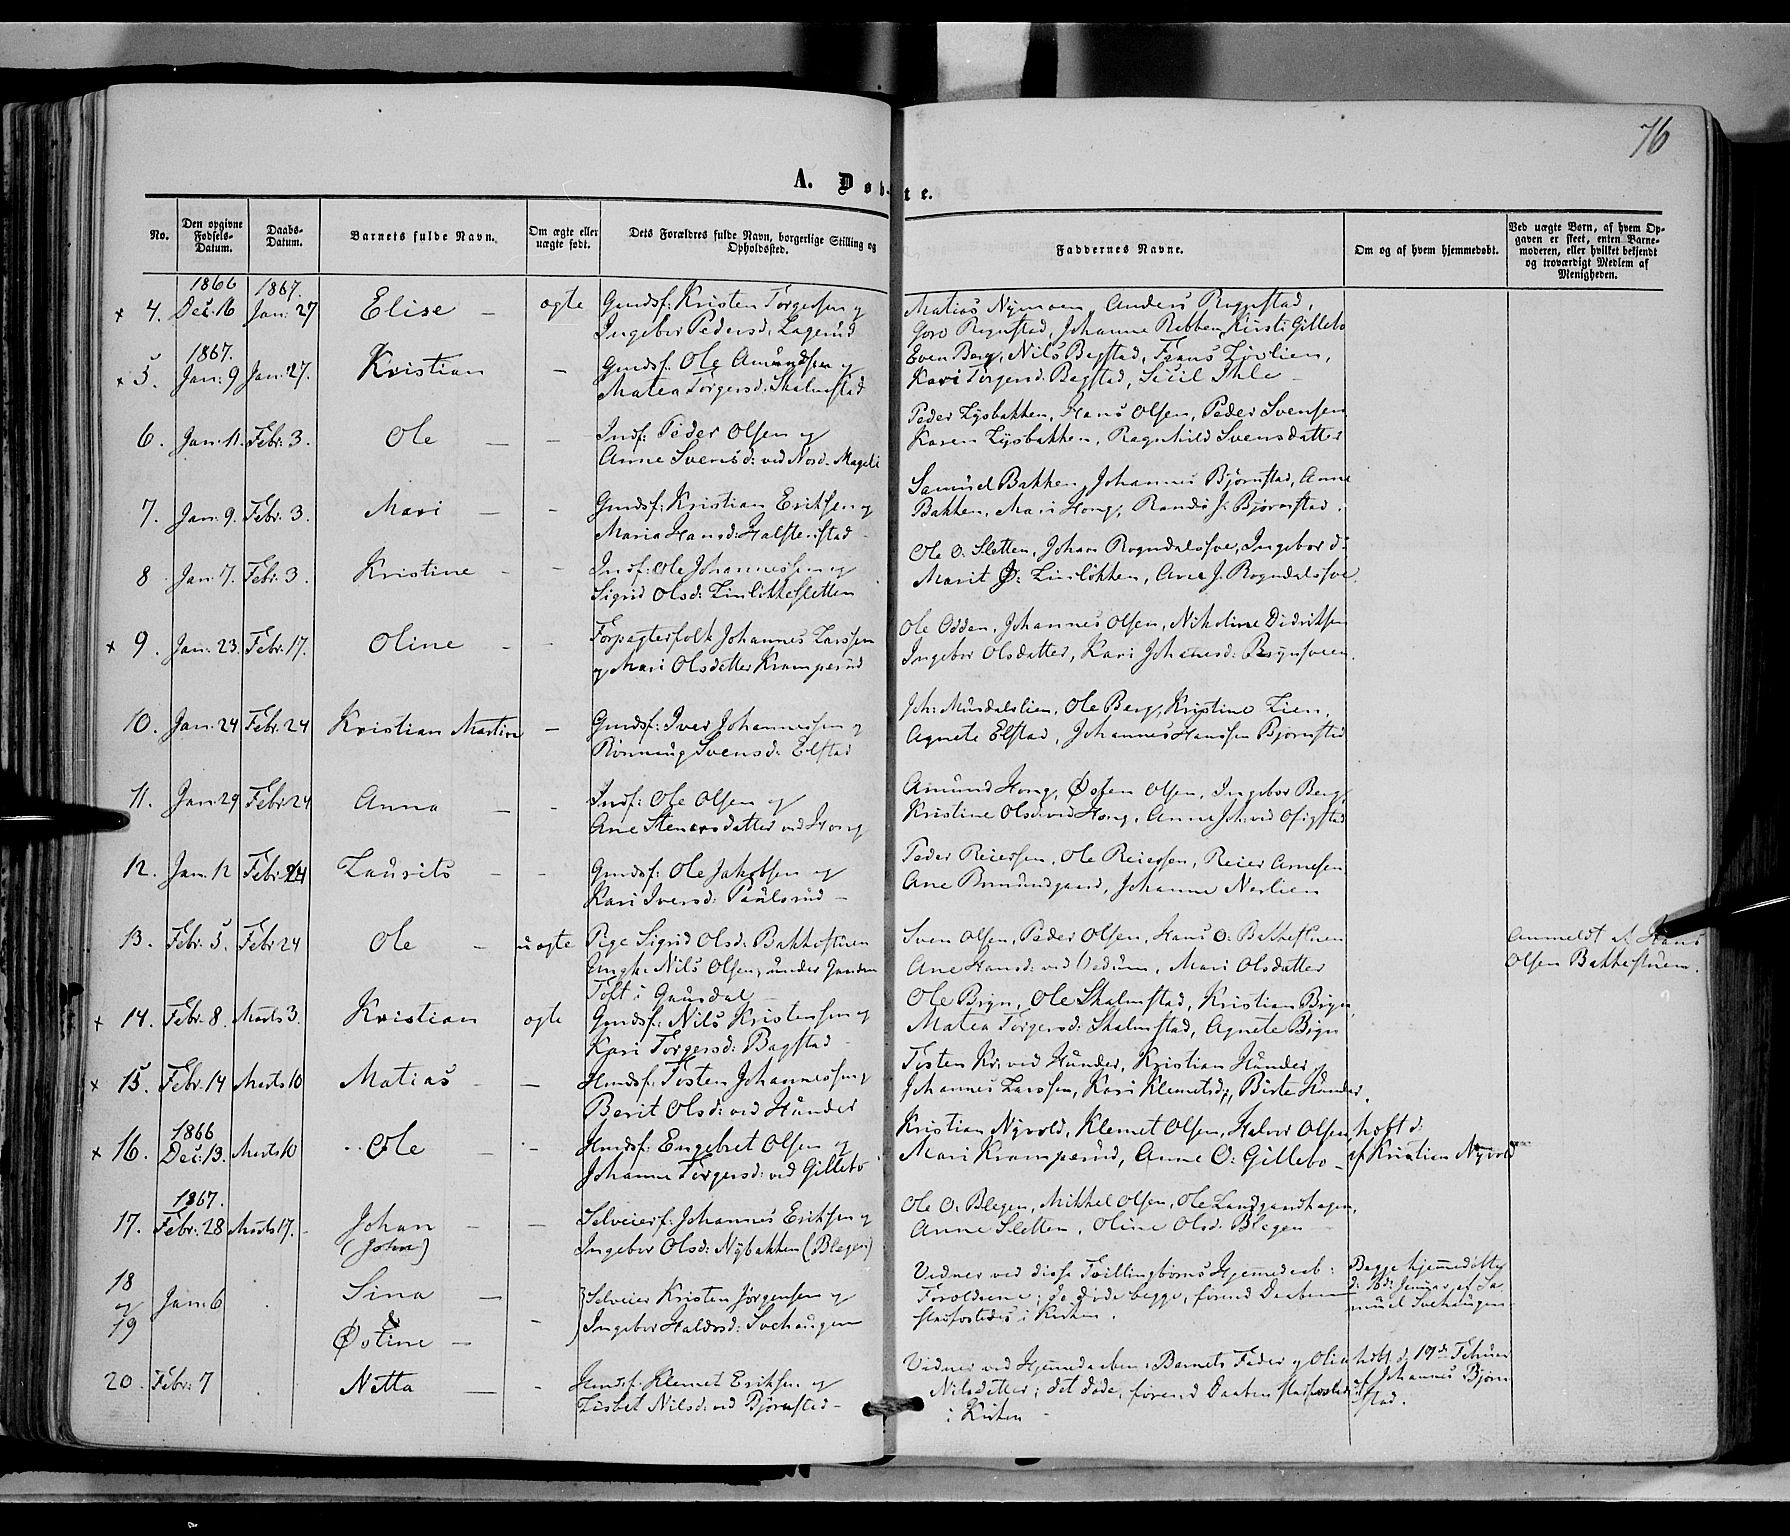 76
A. Døbte.
No.
Den opgivne Fødsels-Datum.
Daabs-Datum.
Barnets fulde Navn.
Om ægte eller uægte født.
Dets Forældres fulde Navn, borgerlige Stilling og Opholdssted.
Faddernes Navne.
Om og af hvem hjemmedøbt.
Ved uægte Børn, af hvem Opgaven er skeet, enten Barnemoderen, eller hvilket bekjendt og troværdigt Medlem af Menigheden.
1866 1867.
x 4. Dec: 16 Jan: 27 Elise – ægte Gmdsf: Kristen Torgersen og
Ingebor Pedersd: Lagerud
Matias Nymoen, Anders Rognstad,
Goro Rognstad, Johanne Rebben, Kirsti Gillebo
1867.
x 5. Jan: 9 Jan: 27. Kristian – Gmdsf: Ole Amundsen og
Matea Torgersd: Skalmstad
Even Berg, Nils Bagstad, Frans Lövlien,
Kari Torgersd: Bagstad, Sicil Ihle –
6. Jan: 11. Febr: 3. Ole – – Indf: Peder Olsen og
Anne Svensd: ved Nord. Mageli
Peder Lysbakken, Hans Olsen, Peder Svensen
Karen Lysbakken, Ragnhild Svensdatter
7. Jan: 9. Febr: 3. Mari – – Gmdsf: Kristian Eriksen og
Maria Hansd: Halstenstad –
Samuel Bakken, Johannes Bjørnstad, Anne
Bakken, Mari Hong, Randi J. Bjørnstad.
8 Jan: 7. Febr: 3. Kristine – – Indf: Ole Johannessen og
Sigrid Olsd: Linlökkesletten
Ole O. Sletten, Johan Rogndalssve, Ingebor d:
Marit Linlökken, Ane J. Rogndalssve.
x 9. Jan: 23. Febr: 17. Oline – – Forpagterfolk Johannes Larssen
og Mari Olsdatter Kramperud
Ole Odden, Johannes Olsen, Nikoline Didriksen
Ingebor Olsdatter, Kari Johanesd: Brynsveen.
10. Jan: 24 Febr: 24 Kristian Martin – Gmdsf: Iver Johannessen og
Rönnaug Svensd: Elstad
Joh: Musdalslien, Ole Berg, Kristine Lien,
Agnete Elstad, Johannes Hanssen Bjørnstad
11. Jan: 29 Febr: 24 Anna – – Indf: Ole Olsen og
Ane Stenersdatter ved Hong
Amund Hong, Østen Olsen, Ingebor Berg,
Kristine Olsd: ved Hong, Anne Joh: ved Ofigstad
12. Jan: 12 Febr: 24 Laurits – – Gmdsf: Ole Jakobsen og
Kari Iversd: Paulsrud –
Peder Reiersen, Ole Reiersen, Reier Arnesen
Ane Brmundgaard, Johanne Nerlien
13. Febr: 5. Febr 24 Ole – uægte Pige Sigrid Olsd: Bakkestuen
Ungk: Nils Olsen, under Jordem
Toft i Gausdal –
Sven Olsen, Peder Olsen, Hans O: Bakkestuen
Ane Hansd: ved Vedum, Mari Olsdatter
Anmeldt af Hans
Olsen Bakkestuen.
x 14. Febr: 8. Marts 3. Kristian ægte Gmdsf: Nils Kristensen og
Kari Torgersd: Bagstad –
Ole Bryn, Ole Skalmstad, Kristian Bryn,
Matea Torgersd: Skalmstad, Agnete Bryn
x 15. Febr: 14 Marts 10 Matias – – Hmdsf: Tosten Johannessen og
Berit Olsd: ved Hunder
Tosten Kr: ved Hunder, Kristian Hunder,
Johannes Larssen, Kari Klemetsd:, Birte Hunder.
1866
x 16. Dec: 13. Marts 10 Ole – – Hmdsf: Engebret Olsen og
Johanne Torgersd: ved Gillebo
Kristian Nyvold, Klemet Olsen, Halvor Olsen,
Mari Kramperud, Anne O: Gillebo –
hdbt d:
af Kristian Nyvold
1867.
17. Febr: 28 Marts 17. Johan – –
(John)
Selveierf: Johannes Eriksen og
Ingebor Olsd: Nybakken (Blegen)
Ole O. Blegen, Mikkel Olsen, Ole Landgaardhagen,
Anne Sletten, Oline Olsd: Blegen –
18
og
19
Jan: 6 Sina –
&
Østine – –
Selveier Kristen Jörgensen og
Ingebor Haldorsd: Svehaugen
Vidner ved disse Tvillingbørns Hjemmedaab:
Forældrene; de døde begge, førend Daaben
stadfæstedes i Kirken.
Begge hjemmedøbte
d: 16de Januar af Sa-
muel Svehaugen
20. Febr: 7 Netta – – Hmdsf: Klemet Eriksen og
Lisbet Nilsd: ved Bjørnstad –
Vidner ved Hjemmedaaben: Barnets Fader og Olia
Nilsdatter; det døde, førend Daaben stadfæstedes
i Kirken –
hdbt d: 17de Februar
af Johannes Bjørn
stad.